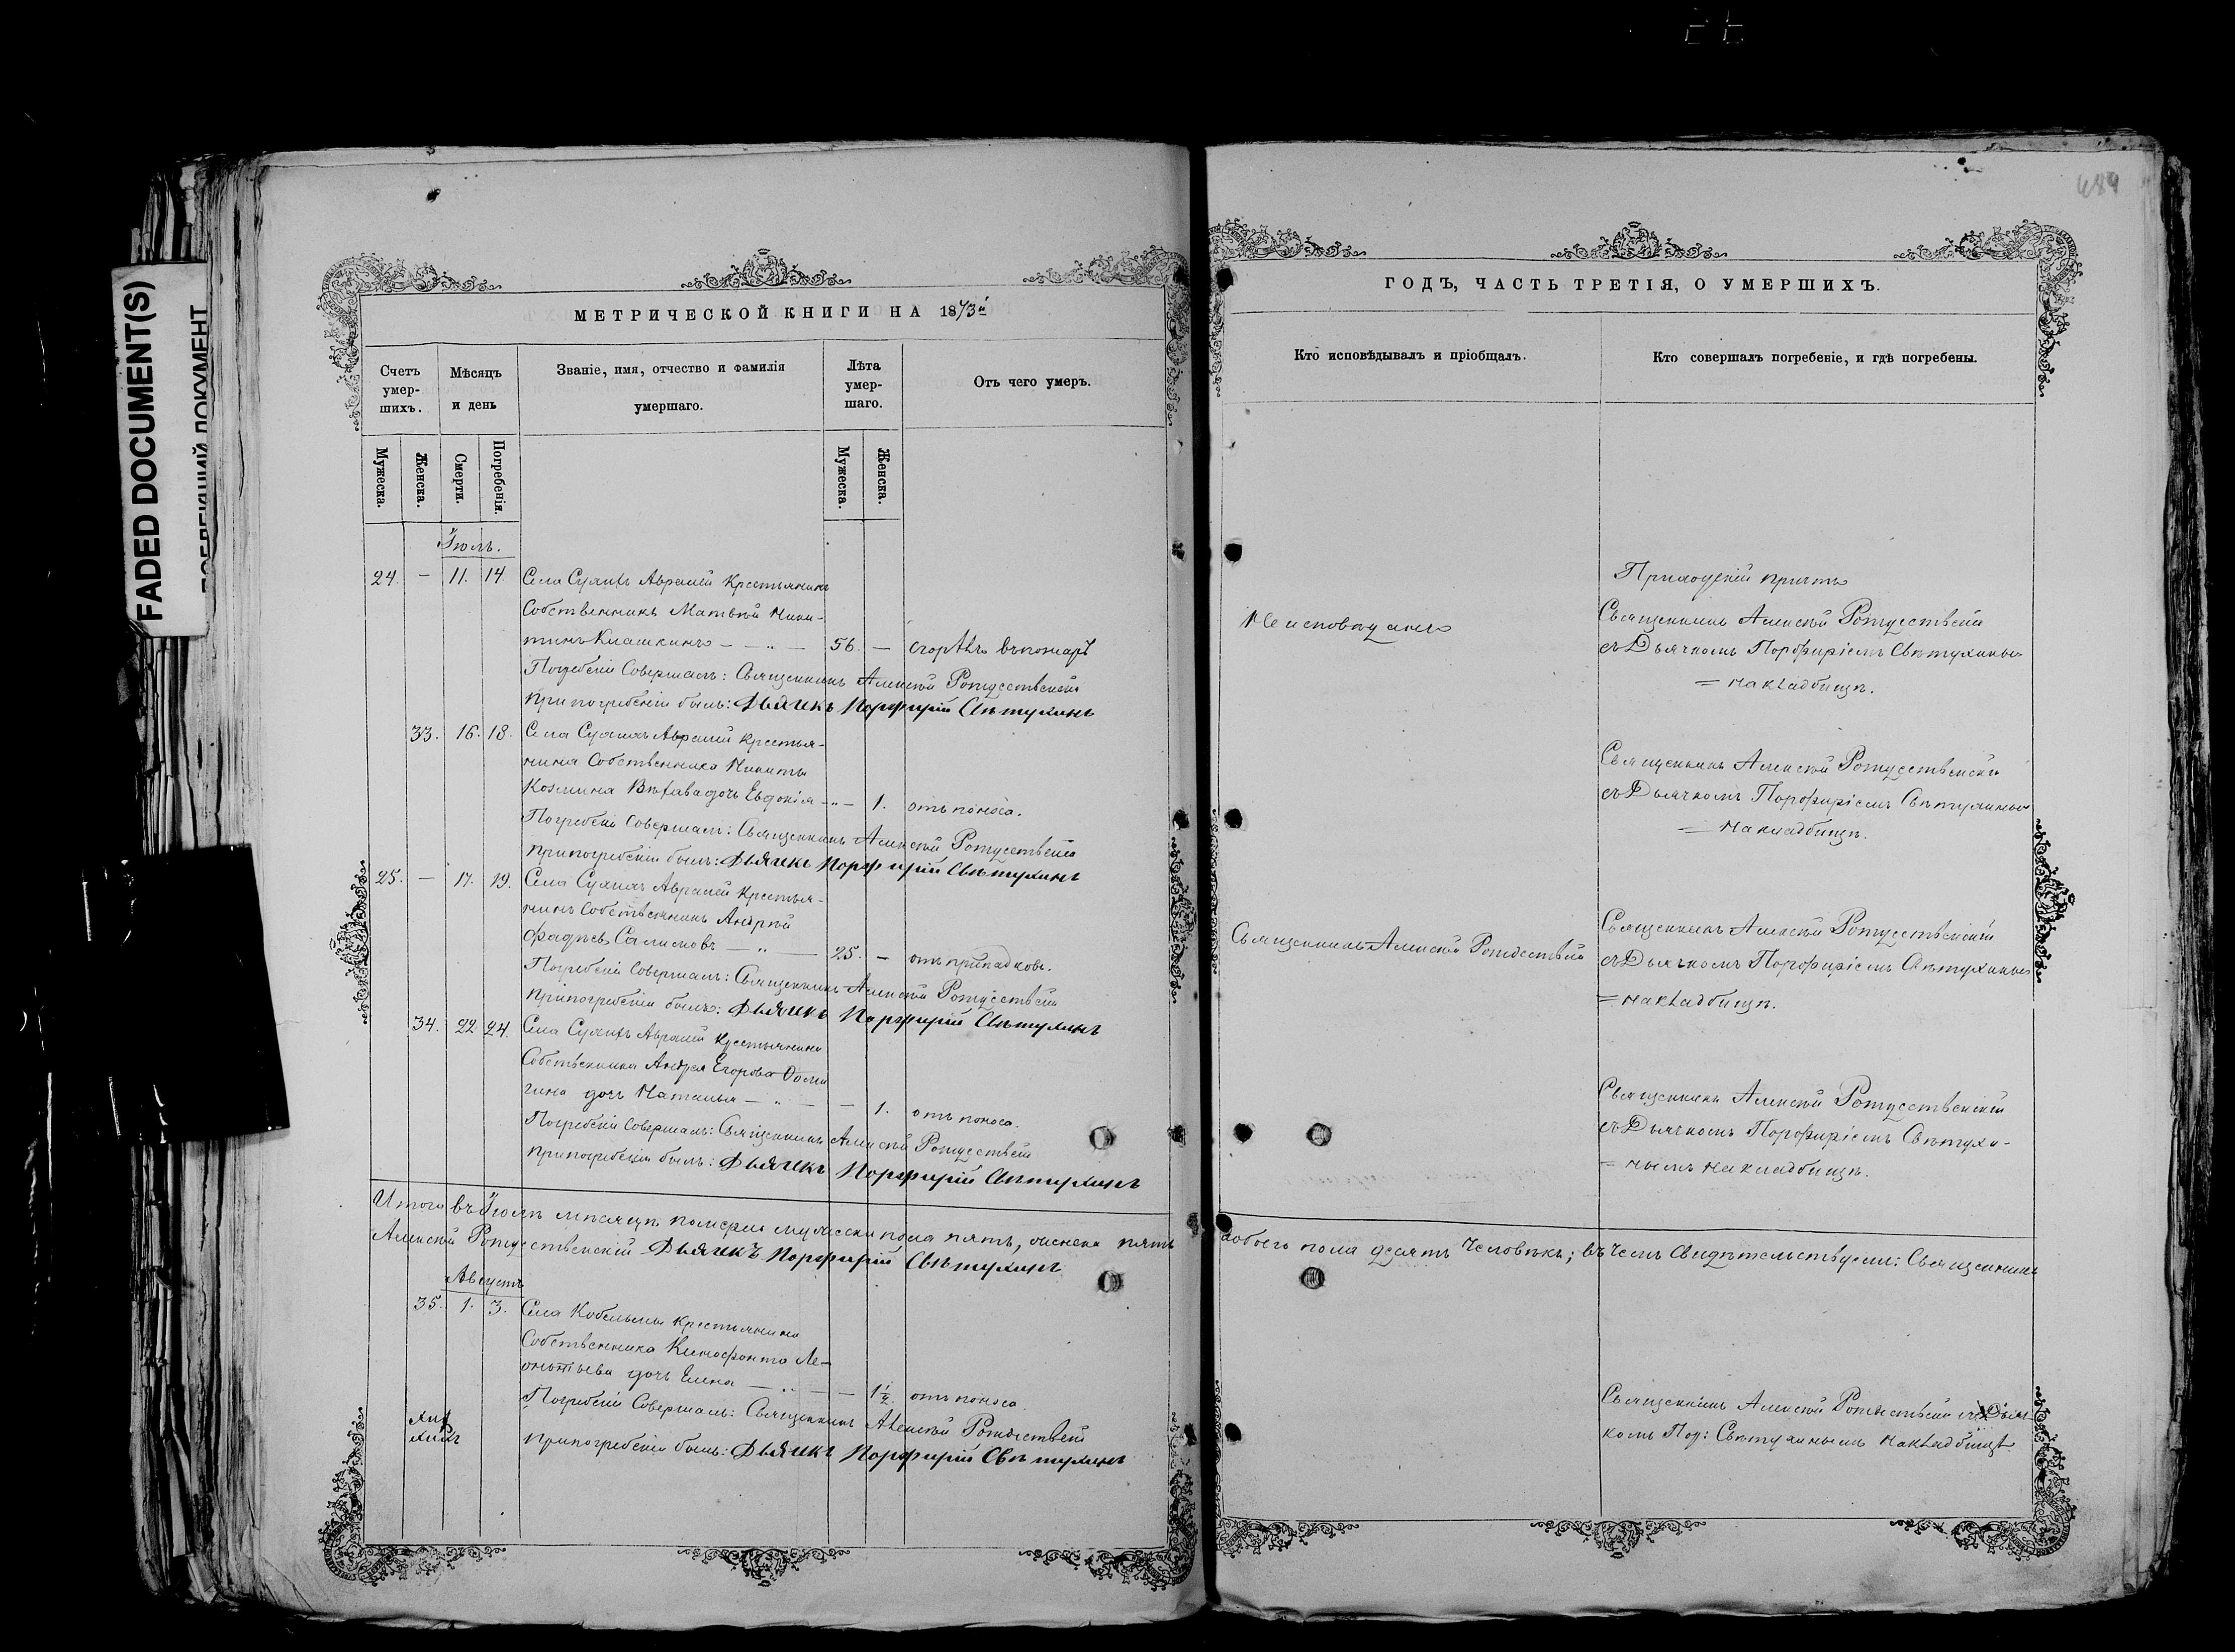 FADED DOCUMENT(S)
484
МЕТРИЧЕСКОЙ КНИГИ НА 1873й
Счетъ умер-шихъ.
Мѣсяцъ и день
Званіе, имя, отчество и фамилія умершаго.
Лѣта умер-шаго.
Отъ чего умеръ.
Мужеска.
Женска.
Смерти.
Погребенія.
Мужеска.
Женска.
Іюль.
24. — 11. 14. Села Авралей Крестьянинъ
Собственникъ Матвѣй Ники-
тинъ Клашкинъ — „ — 56. — сгорѣлъ въ пожарѣ
Погребеніе Совершалъ: Священникъ Алексѣй Рождественскій
При погребеніи былъ: Дьячекъ Порфирій Свѣтухинъ
33. 16. 18. Села Авралей Крестья-
нина Собственника Никиты
Козмина дочь Евдокія — „ — 1. отъ поноса.
Погребеніе Совершалъ: Священникъ Алексѣй Рождественскій
При погребеніи былъ: Дьячекъ Порфирій Свѣтухинъ
25. — 17. 19. Села Авралей Крестья-
нинъ Собственникъ Андрей
Фадѣевъ — „ — 25. — отъ припадковъ.
Погребеніе Совершалъ: Священникъ Алексѣй Рождественскій
При погребеніи былъ: Дьячекъ Порфирій Свѣтухинъ
34. 22 24. Села Авралей Крестьянина
Собственника Андрея Егорова
дочь Наталья — „ — — 1. отъ поноса.
Погребеніе Совершалъ: Священникъ Алексѣй Рождественскій
При погребеніи былъ: Дьячекъ Порфирій Свѣтухинъ
Итого въ Іюлѣ мѣсяцѣ померло мужеска пола пять, женска пять
Алексѣй Рождественскій Дьячекъ Порфирій Свѣтухинъ
Августъ
35. 1. 3. Села Крестьянина
Собственника Ксенофонта Ле-
онтьева дочь Елена — „ — — 1½. отъ поноса.
Погребеніе Совершалъ: Священникъ Алексѣй Рождественскій
При погребеніи былъ: Дьячекъ Порфирій Свѣтухинъ
ГОДЪ, ЧАСТЬ ТРЕТІЯ, О УМЕРШИХЪ.
Кто исповѣдывалъ и пріобщалъ.
Кто совершалъ погребеніе, и гдѣ погребены.
Не исповѣданъ
Приходскій причтъ
Священникъ Алексѣй Рождественскій
съ Дьячкомъ Порфиріемъ Свѣтухинымъ
= на кладбищѣ.
Священникъ Алексѣй Рождественскій
съ Дьячкомъ Порфиріемъ Свѣтухинымъ
= на кладбищѣ.
Священникъ Алексѣй Рождественскій
Священникъ Алексѣй Рождественскій
съ Дьячкомъ Порфиріемъ Свѣтухинымъ
= на кладбищѣ.
Священникъ Алексѣй Рождественскій
съ Дьячкомъ Порфиріемъ Свѣтухи-
= нымъ на кладбищѣ.
а обоего пола десять Человѣкъ; въ чемъ Свидѣтельствуемъ: Священникъ
Священникъ Алексѣй Рождественскій съ Дьяч-
комъ Пор: Свѣтухинымъ на кладбищѣ